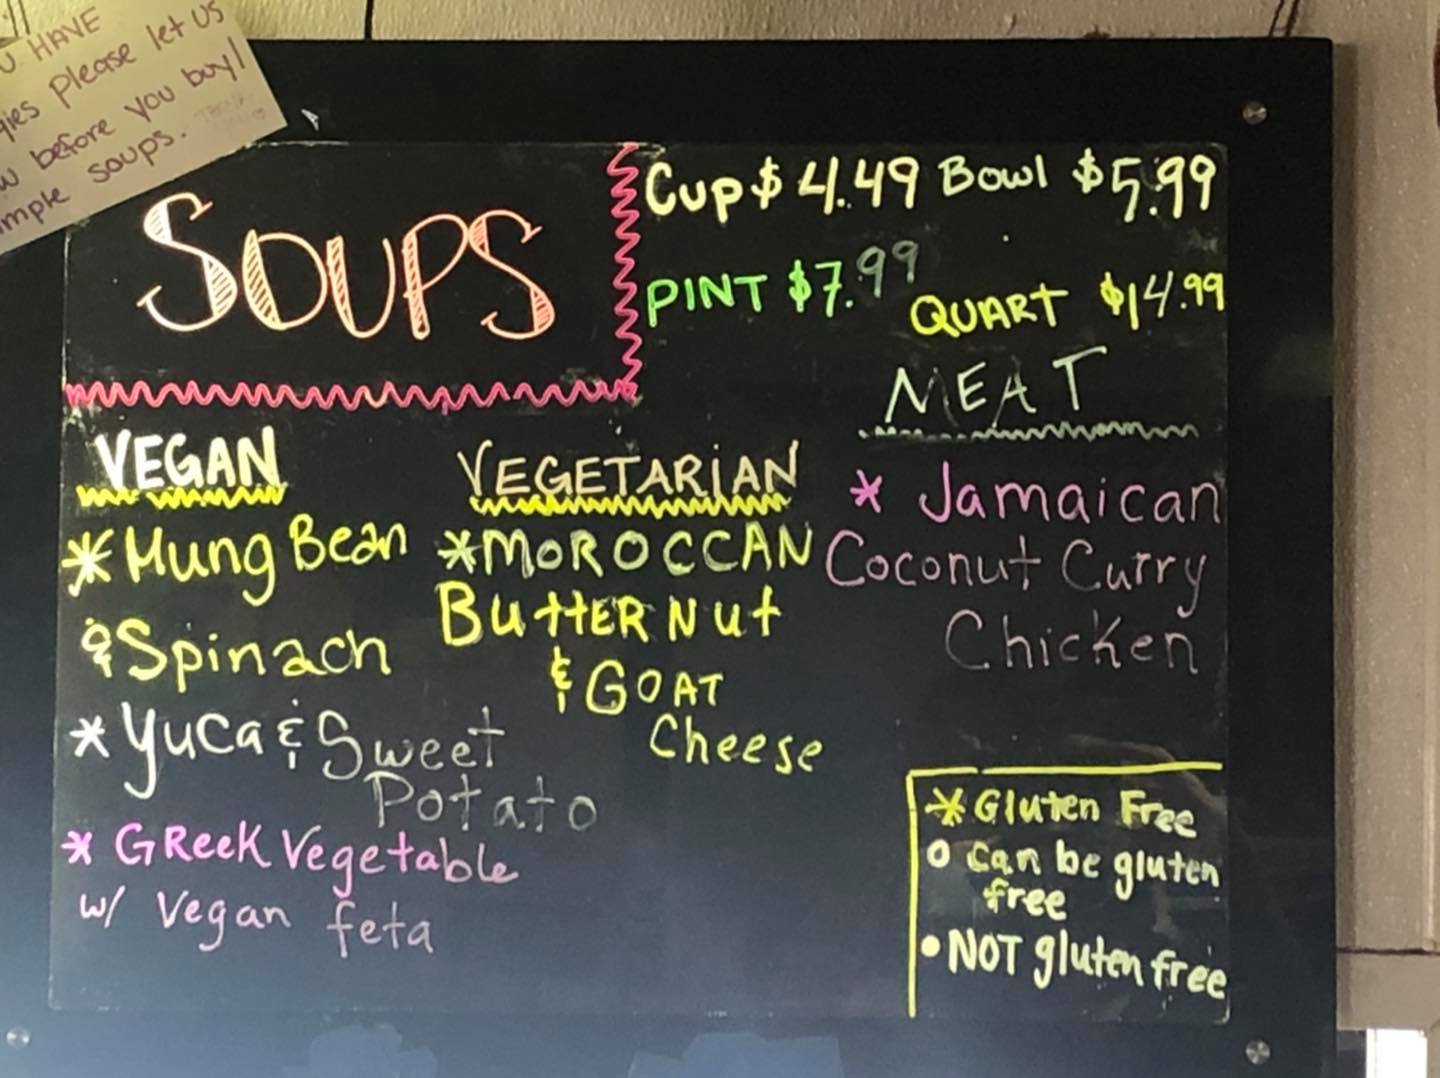 U HAVE
gies please let us
w before you buy!
mple soups.
SOUPS
Cup $4.49 Bowl $5.99
PINT $7.99
QUART $14.99
VEGAN
*Mung Bean
&Spinach
*Yuca & Sweet
Potato
*Greek Vegetable
w/ Vegan feta
VEGETARIAN
*MOROCCAN
ButterNut
& GOAT
Cheese
MEAT
* Jamaican
Coconut Curry
Chicken
* Gluten Free
o can be gluten
free
• NOT gluten free